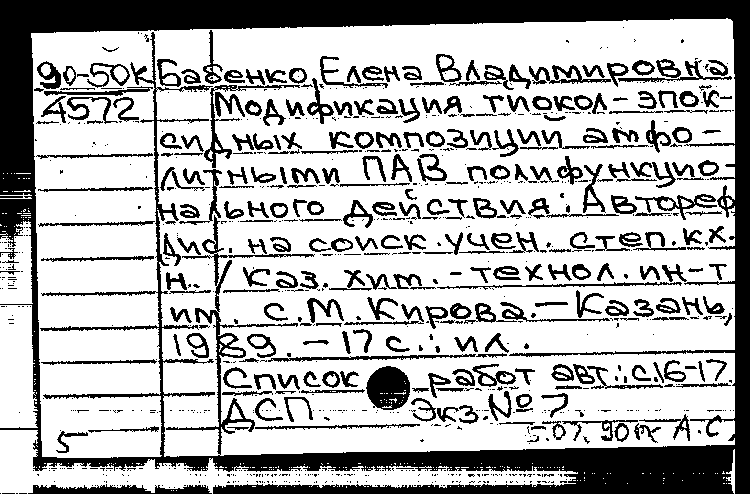 90-50к Бабенко, Елена Владимировна
4572 Модификация тиокол-эпок-
сидных композиции амфо-
литными ПАВ полифункцио-
нального действия: Автореф
дис. на соиск. учен. степ. к.х.
н. / Каз. хим.-технол. ин-т
им. С.М. Кирова. - Казань,
1989. - 17 с.: ил.
Список работ авт.: с.16-17.
ДСП. Экз. № 7.
5 5.07. 90 А.С.